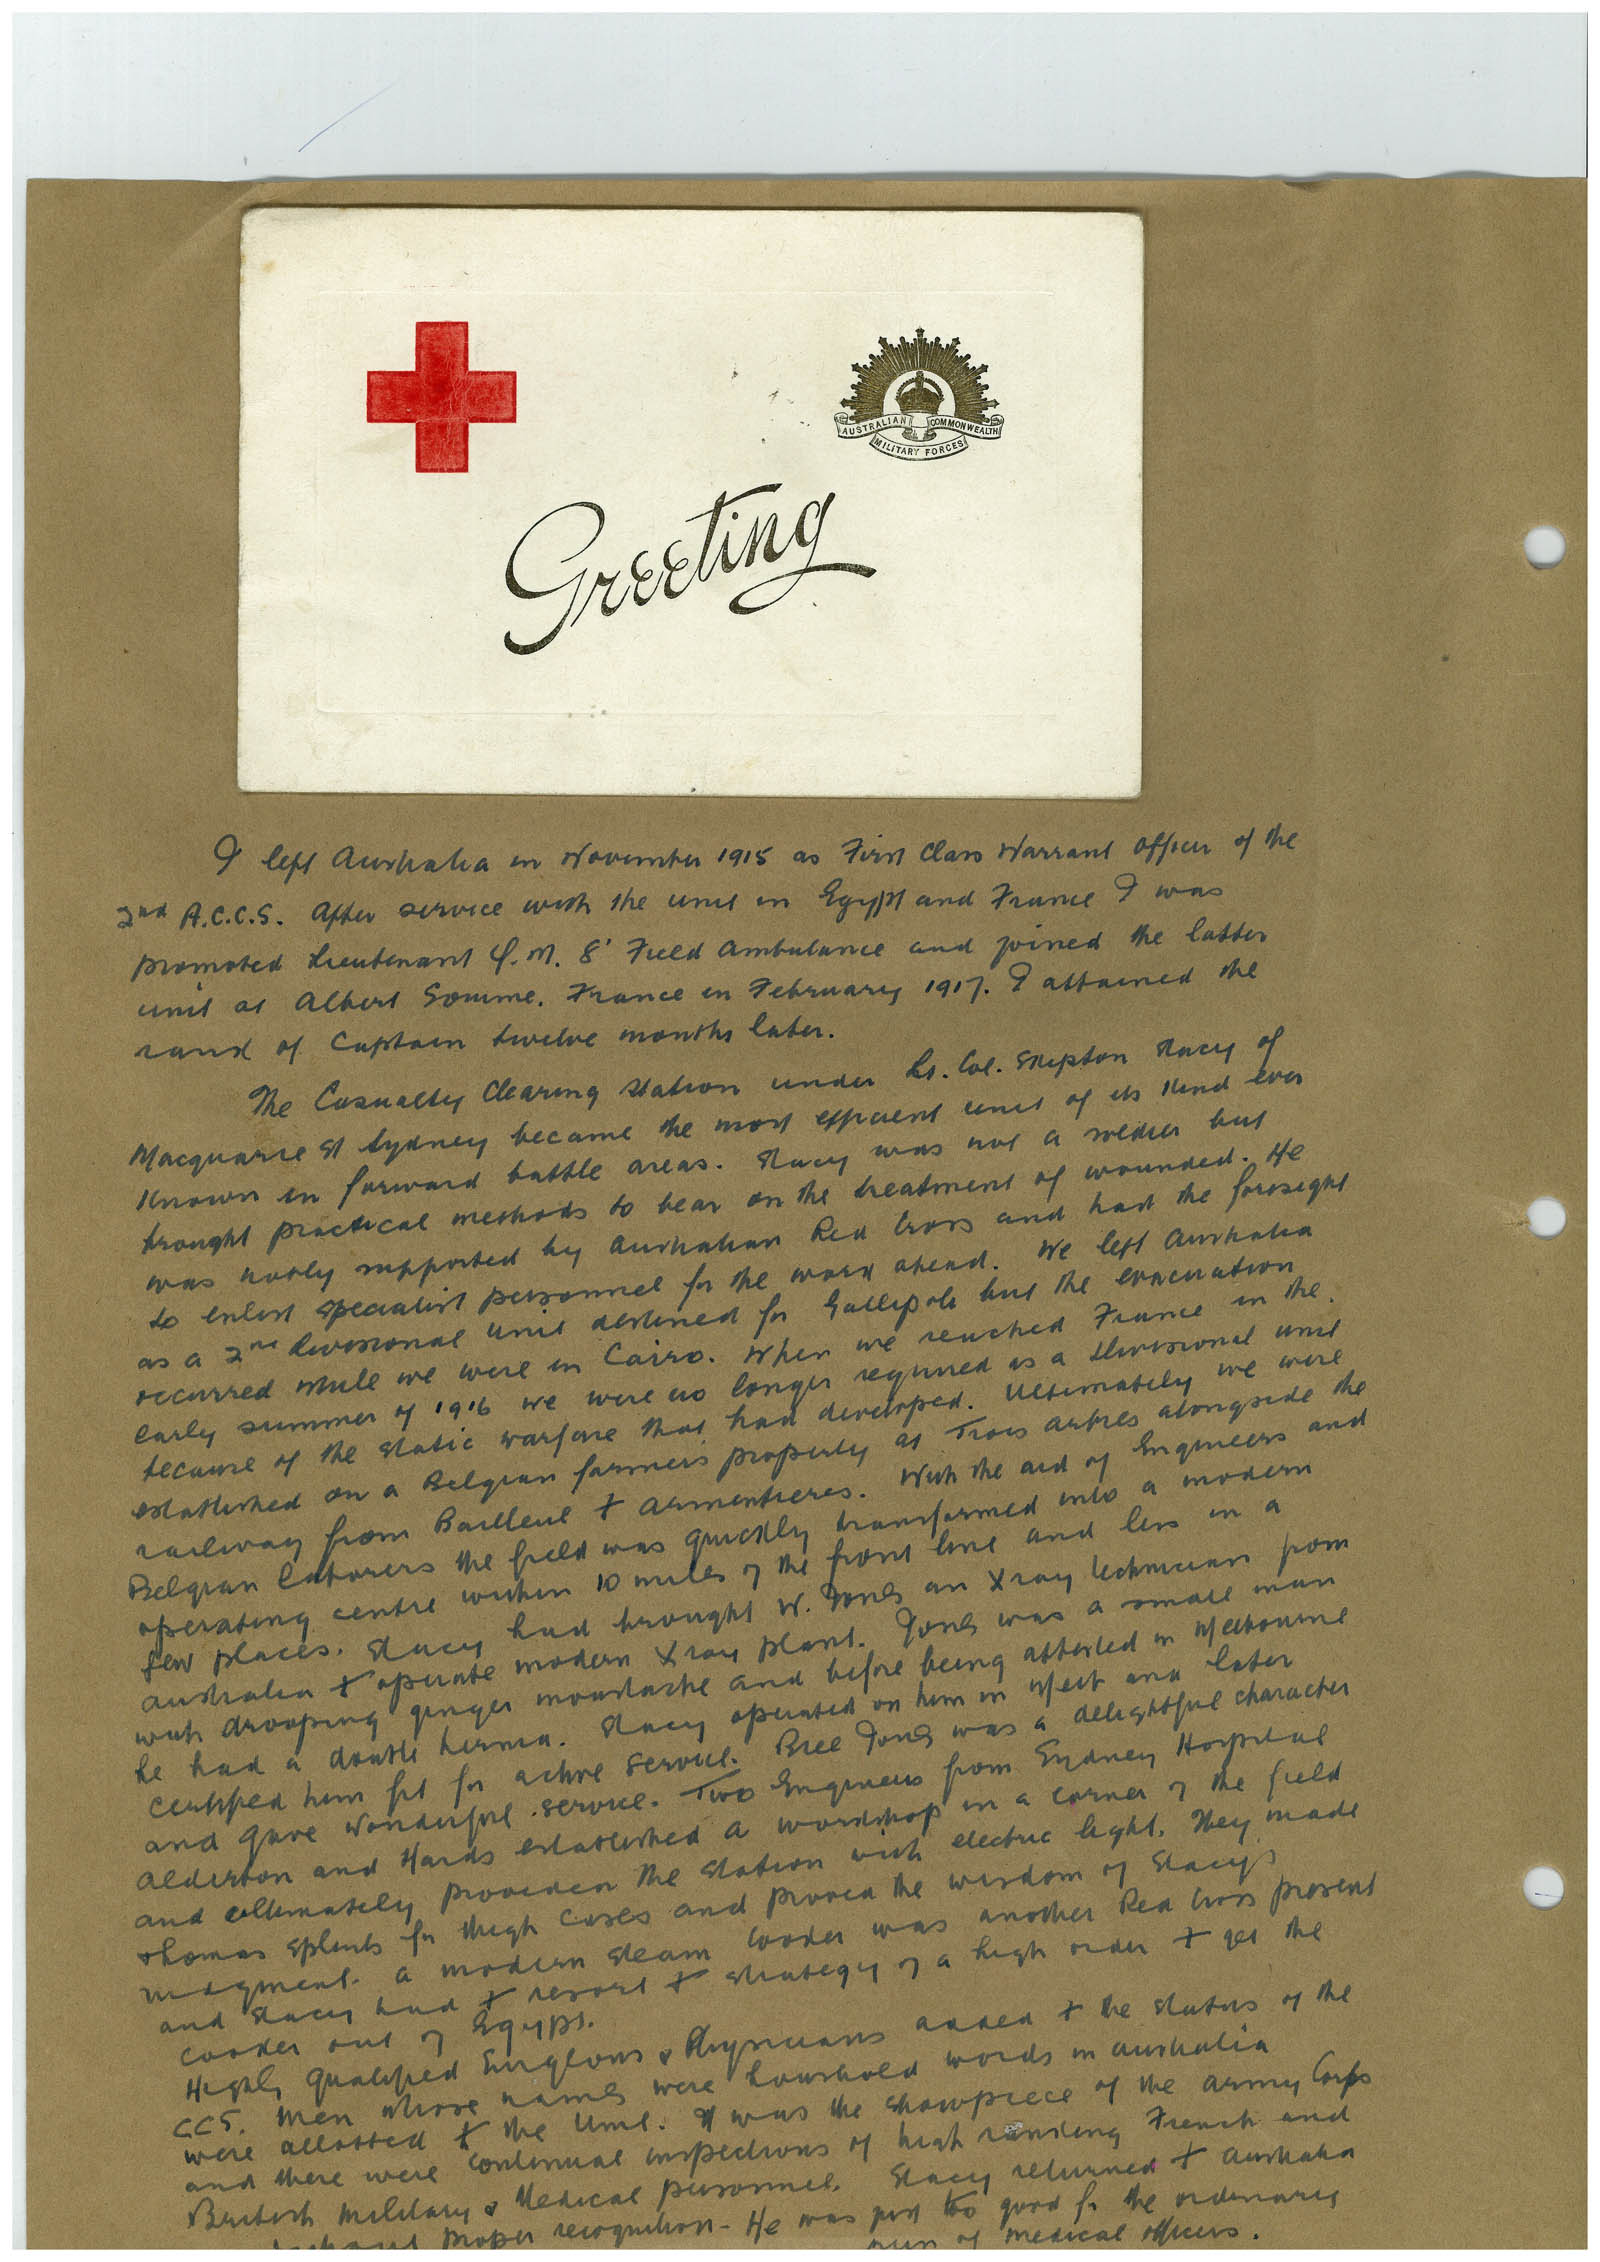 AUSTRALIAN COMMONWEALTH
MILITARY FORCES
Greeting
I left Australia in November 1915 as First Class Warrant Officer of the
2nd A.C.C.S. After service with the unit in Egypt and France I was
promoted Lieutenant Q.M. 8' Field Ambulance and joined the latter
unit at Albert Somme. France in February 1917. I attained the
rank of Captain twelve months later.
The Casualty Clearing Station under Lt. Col. Skipton Stacy of
Macquarie St Sydney became the most efficient unit of its kind ever
known in forward battle areas. Stacy was not a soldier but
brought practical methods to bear on the treatment of wounded. He
was nobly supported by Australian Red Cross and had the foresight
to enlist specialist personnel for the work ahead. We left Australia
as a 2nd Divisional unit destined for Gallipoli but the evacuation
occurred while we were in Cairo. When we reached France in the
early summer of 1916 we were no longer required as a Divisional unit
because of the static warfare that had developed. Ultimately we were
established on a Belgian farmers property at Trois Arbres alongside the
railway from Bailleul + Armentieres. With the aid of Engineers and
Belgian laborers the field was quickly transformed into a modern
operating centre within 10 miles of the front line and less in a
few places. Stacy had brought W. Jones an X ray technician from
Australia + operate modern X ray plant. Jones was a small man
with drooping ginger moustache and before being attested in Melbourne
he had a double hernia. Stacy operated on him in Melb and later
certified him fit for active service. Bill Jones was a delightful character
and gave wonderful service. Two Engineers from Sydney Hospital
Alderton and Hards established a workshop in a corner of the field
and ultimately provided the station with electric light. They made
Thomas splints for thigh cases and proved the wisdom of Stacy's
judgment. A modern steam cooker was another Red Cross present
and Stacy had + resort + strategy of a high order + get the
cooker out of Egypt.
Highly qualified Surgeons & Physicians added + the status of the
CCS. Men whose names were household words in Australia
were allotted + the Unit. It was the showpiece of the Army Corps
and there were continual inspections of high ranking French and
British Military & Medical personnel. Stacy returned + Australia
without proper recognition - He was just too good for the ordinary
run of medical officers.